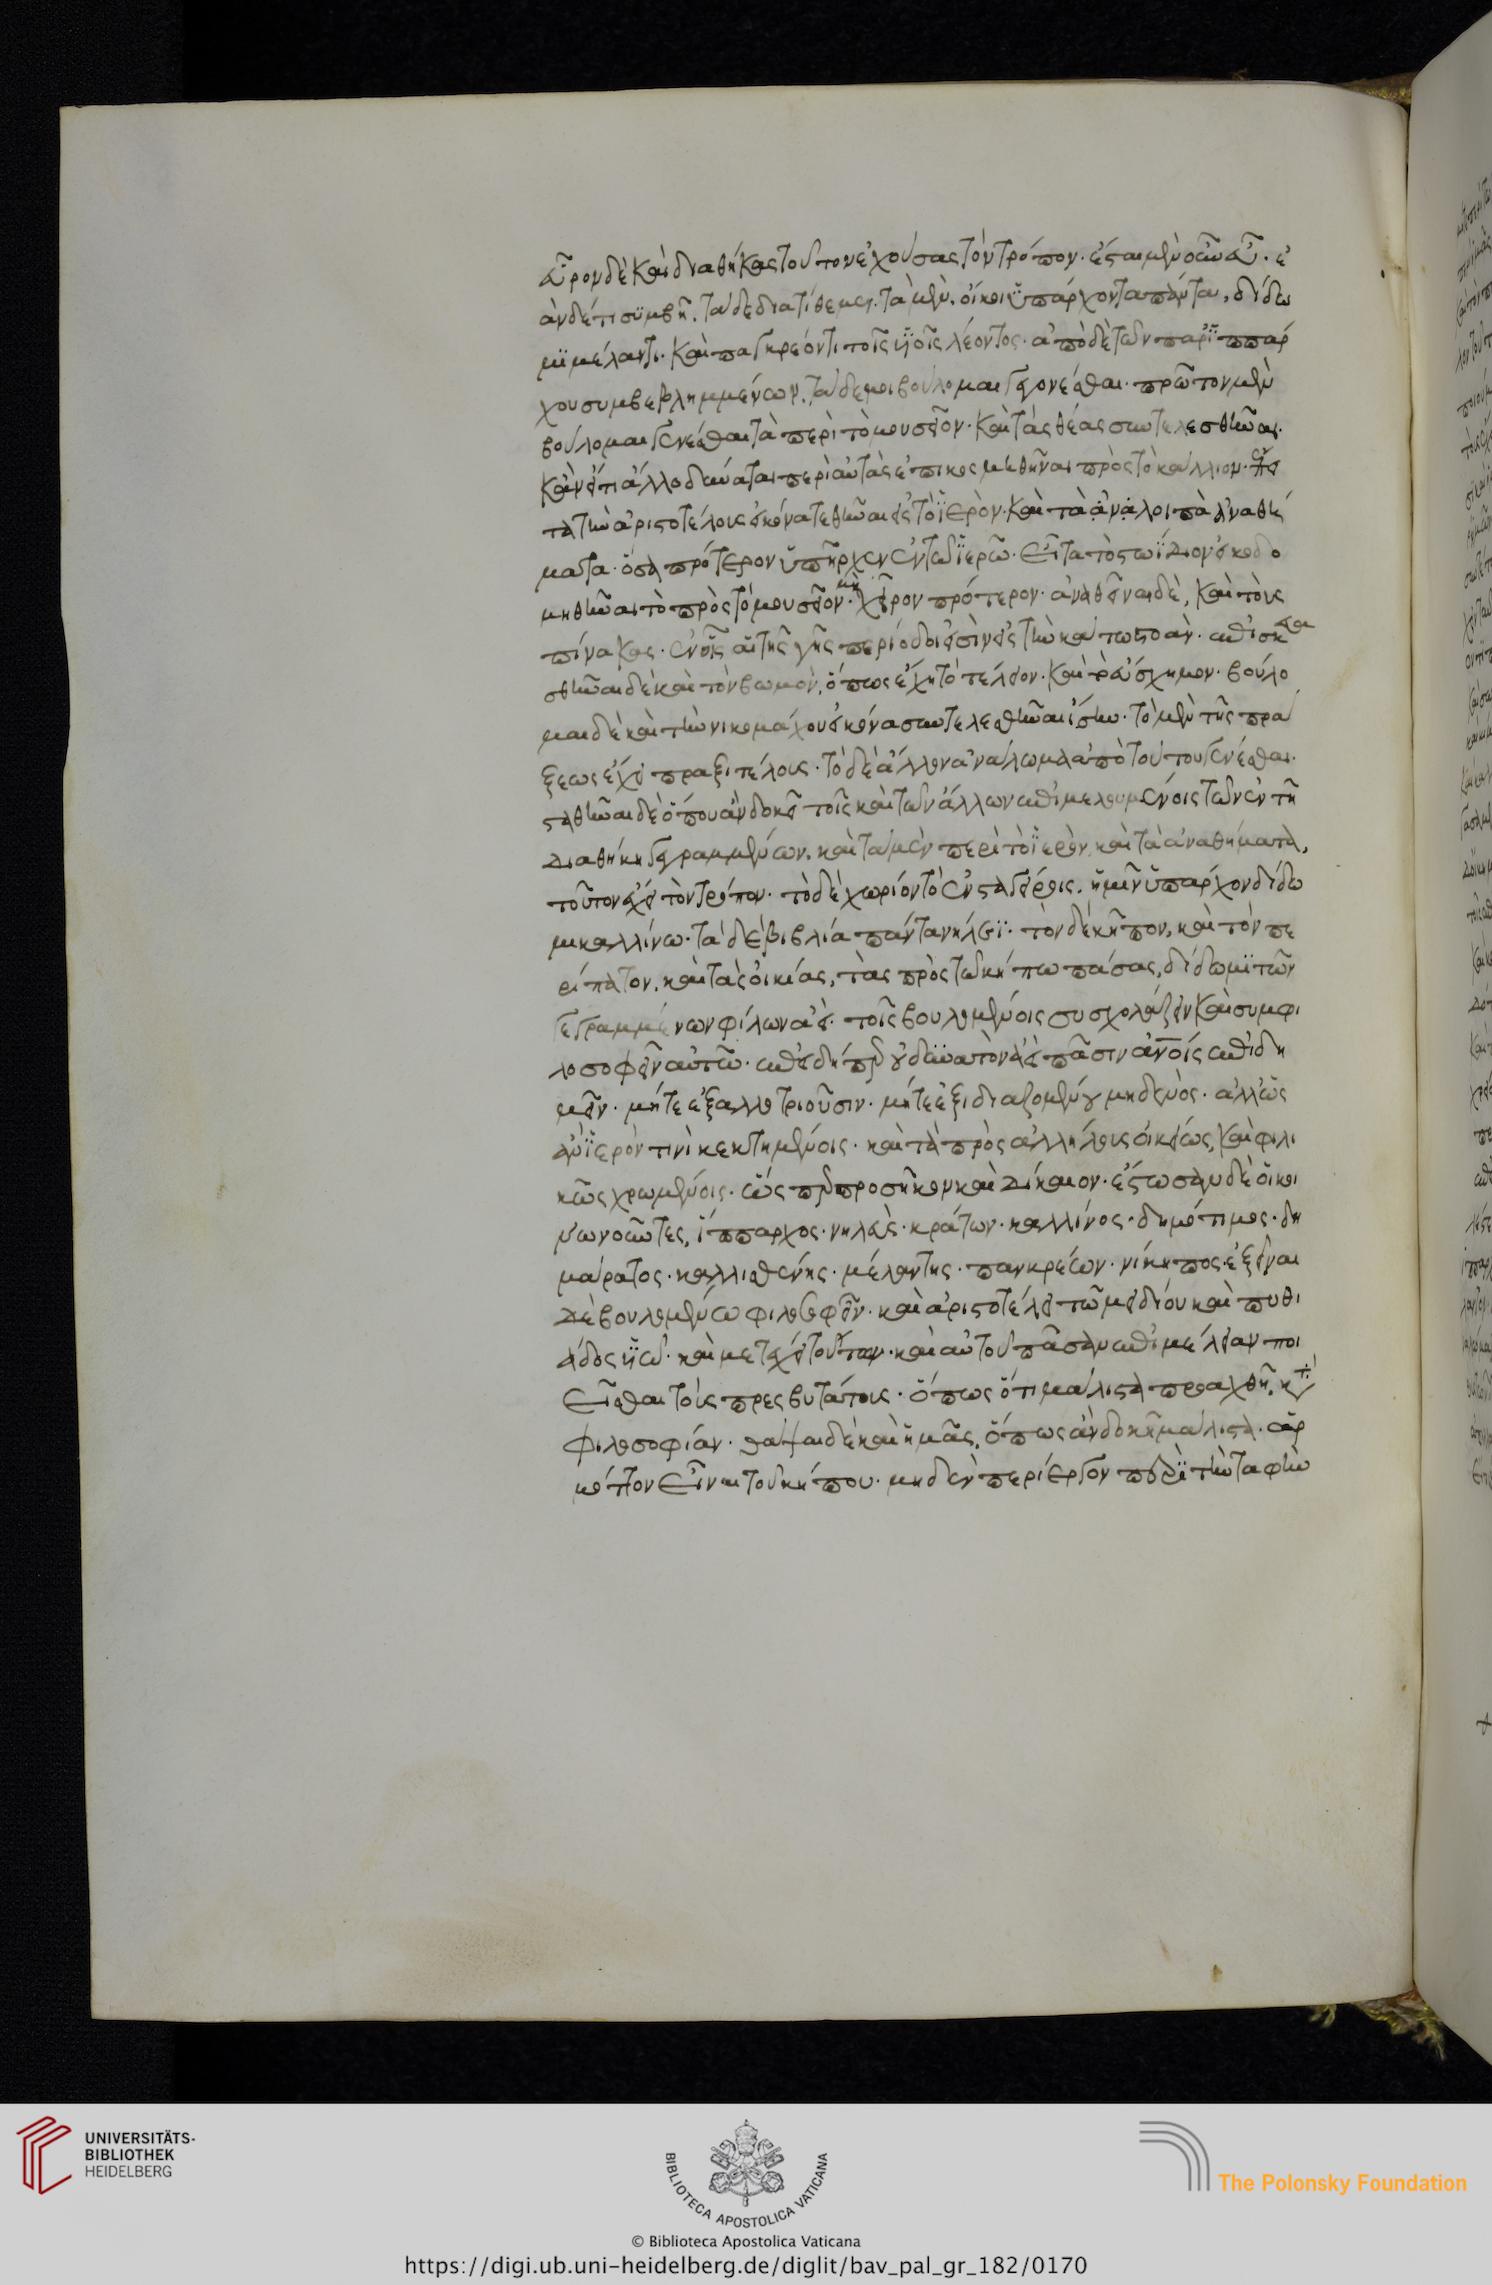 εὗρον δὲ καὶ διαθήκας τοῦτον ἐχούσας τὸν τρόπον· ἔσται μὲν οὖν εὖ· ἐ
ὰν δέ τι συμβῆ· τάδε διατίθεμαι· τὰ μὲν οἴκοι ὑπάρχοντα πάντα, δίδω
μι μέλαντι· καὶ παγκρέοντι τοῖς υἱοῖς λέοντος· ἀπὸ δὲ τῶν παρ' ἱππάρ
χου συμβεβλημμένων, τάδε μοι βούλομαι γενέσθαι· πρῶτον μὲν
βούλομαι γενέσθαι τὰ περὶ τὸ μουσεῖον· καὶ τὰς θέας συντελεσθῆναι·
κἂν ἔτι ἄλλο δύναται περὶ αὐτὰς ἐπικοσμηθῆναι πρὸς τὸ κάλλιον· ἔπει
τα τὴν ἀριστοτέλους εἰκόνα τεθῆναι εἰς τὸ ἱερὸν· καὶ τὰ ἀνὰ λοιπὰ ἀναθή
ματα· ὅσα πρότερον ὑπῆρχεν ἐν τῶ ἱερῶ· εἶτα τὸ στωΐδιον οἰκοδο
μηθῆναι τὸ πρὸς τὸ μουσεῖον· μὴ χεῖρον πρότερον· ἀναθεῖναι δὲ, καὶ τοὺς
πίνακας· ἐν οἷς αἱ τῆς γῆς περίοδοι εἰσὶν εἰς τὴν κάτω στοὰν· ἐπισκευα
σθῆναι δὲ καὶ τὸν βωμὸν, ὅπως ἔχη τὸ τέλειον· καὶ τὸ εὔσχημον· βούλο
μαι δὲ καὶ τὴν νικομάχου εἰκόνα συντελεσθῆναι ἴσην· τὸ μὲν τῆς πρά
ξεως ἔχει πραξιτέλους· τὸ δὲ ἄλλον ἀνάλωμα ἀπὸ τούτου γενέσθαι·
σταθῆναι δὲ ὅπου ἂν δοκεῖ τοῖς καὶ τῶν ἄλλων ἐπιμελουμένοις τῶν ἐν τῆ
διαθήκη γεγραμμένων· καὶ τὰ μὲν περὶ τὸ ἱερὸν, καὶ τὰ ἀναθήματα,
τοῦτον ἔχει τὸν τρόπον· τὸ δὲ χωρίον τὸ ἐν σταγείροις, ἡμῖν ὑπάρχον δίδω
μι καλλίνω· τὰ δὲ βιβλία πάντα νηλεῖ· τὸν δὲ κῆπον, καὶ τὸν πε
ρίπατον, καὶ τὰς οἰκίας, τὰς πρὸς τῶ κήπω πάσας, δίδωμι τῶν
γεγραμμένων φίλων ἀεὶ· τοῖς βουλομένοις συσχολάζειν καὶ συμφι
λοσοφεῖν αὐτῶ· ἐπειδήπερ οὐ δυνατὸν ἀεὶ πᾶσιν ἀνοῖς ἐπιδη
μεῖν· μήτε ἐξαλλοτριοῦσιν· μήτε ἐξιδιαζομένου μηδενὸς· ἀλλ' ὡς
ἂν ἱερόν τινὶ κεκτημένοις· καὶ τὰ πρὸς ἀλλήλους οἰκείως, καὶ φιλι
κῶς χρωμένοις· ὥσπερ προσῆκον καὶ δίκαιον· ἔστωσαν δὲ οἱ κοι
νωνοῦντες, ἵππαρχος· νηλεὺς· κράτων· καλλίνος· δημότιμος· δη
μάρατος· καλλισθένης· μέλαντης· πανκρέων· νίκηπος· ἐξεῖναι
δὲ βουλομένω φιλοσοφεῖν· καὶ ἀριστοτέλει τῶ μειδίου καὶ πυθι
άδος υἱῶ· καὶ μετέχει τούτων· καὶ αὐτοῦ πᾶσαν ἐπιμέλειαν ποι
εῖσθαι τοὺς πρεσβυτάτους· ὅπως ὅτι μάλιστα προαχθῆ, κατὰ
φιλοσοφίαν· θάψαι δὲ καὶ ἡμᾶς, ὅπως ἂν δοκῆ μάλιστα ἁρ
μόττον εἶναι τοῦ κήπου· μηδὲν περίεργον περὶ τὴν ταφὴν
UNIVERSITÄTS-
BIBLIOTHEK
HEIDELBERG
BIBLIOTECA APOSTOLICA VATICANA
The Polonsky Foundation
© Biblioteca Apostolica Vaticana
https://digi.ub.uni-heidelberg.de/diglit/bav_pal_gr_182/0170